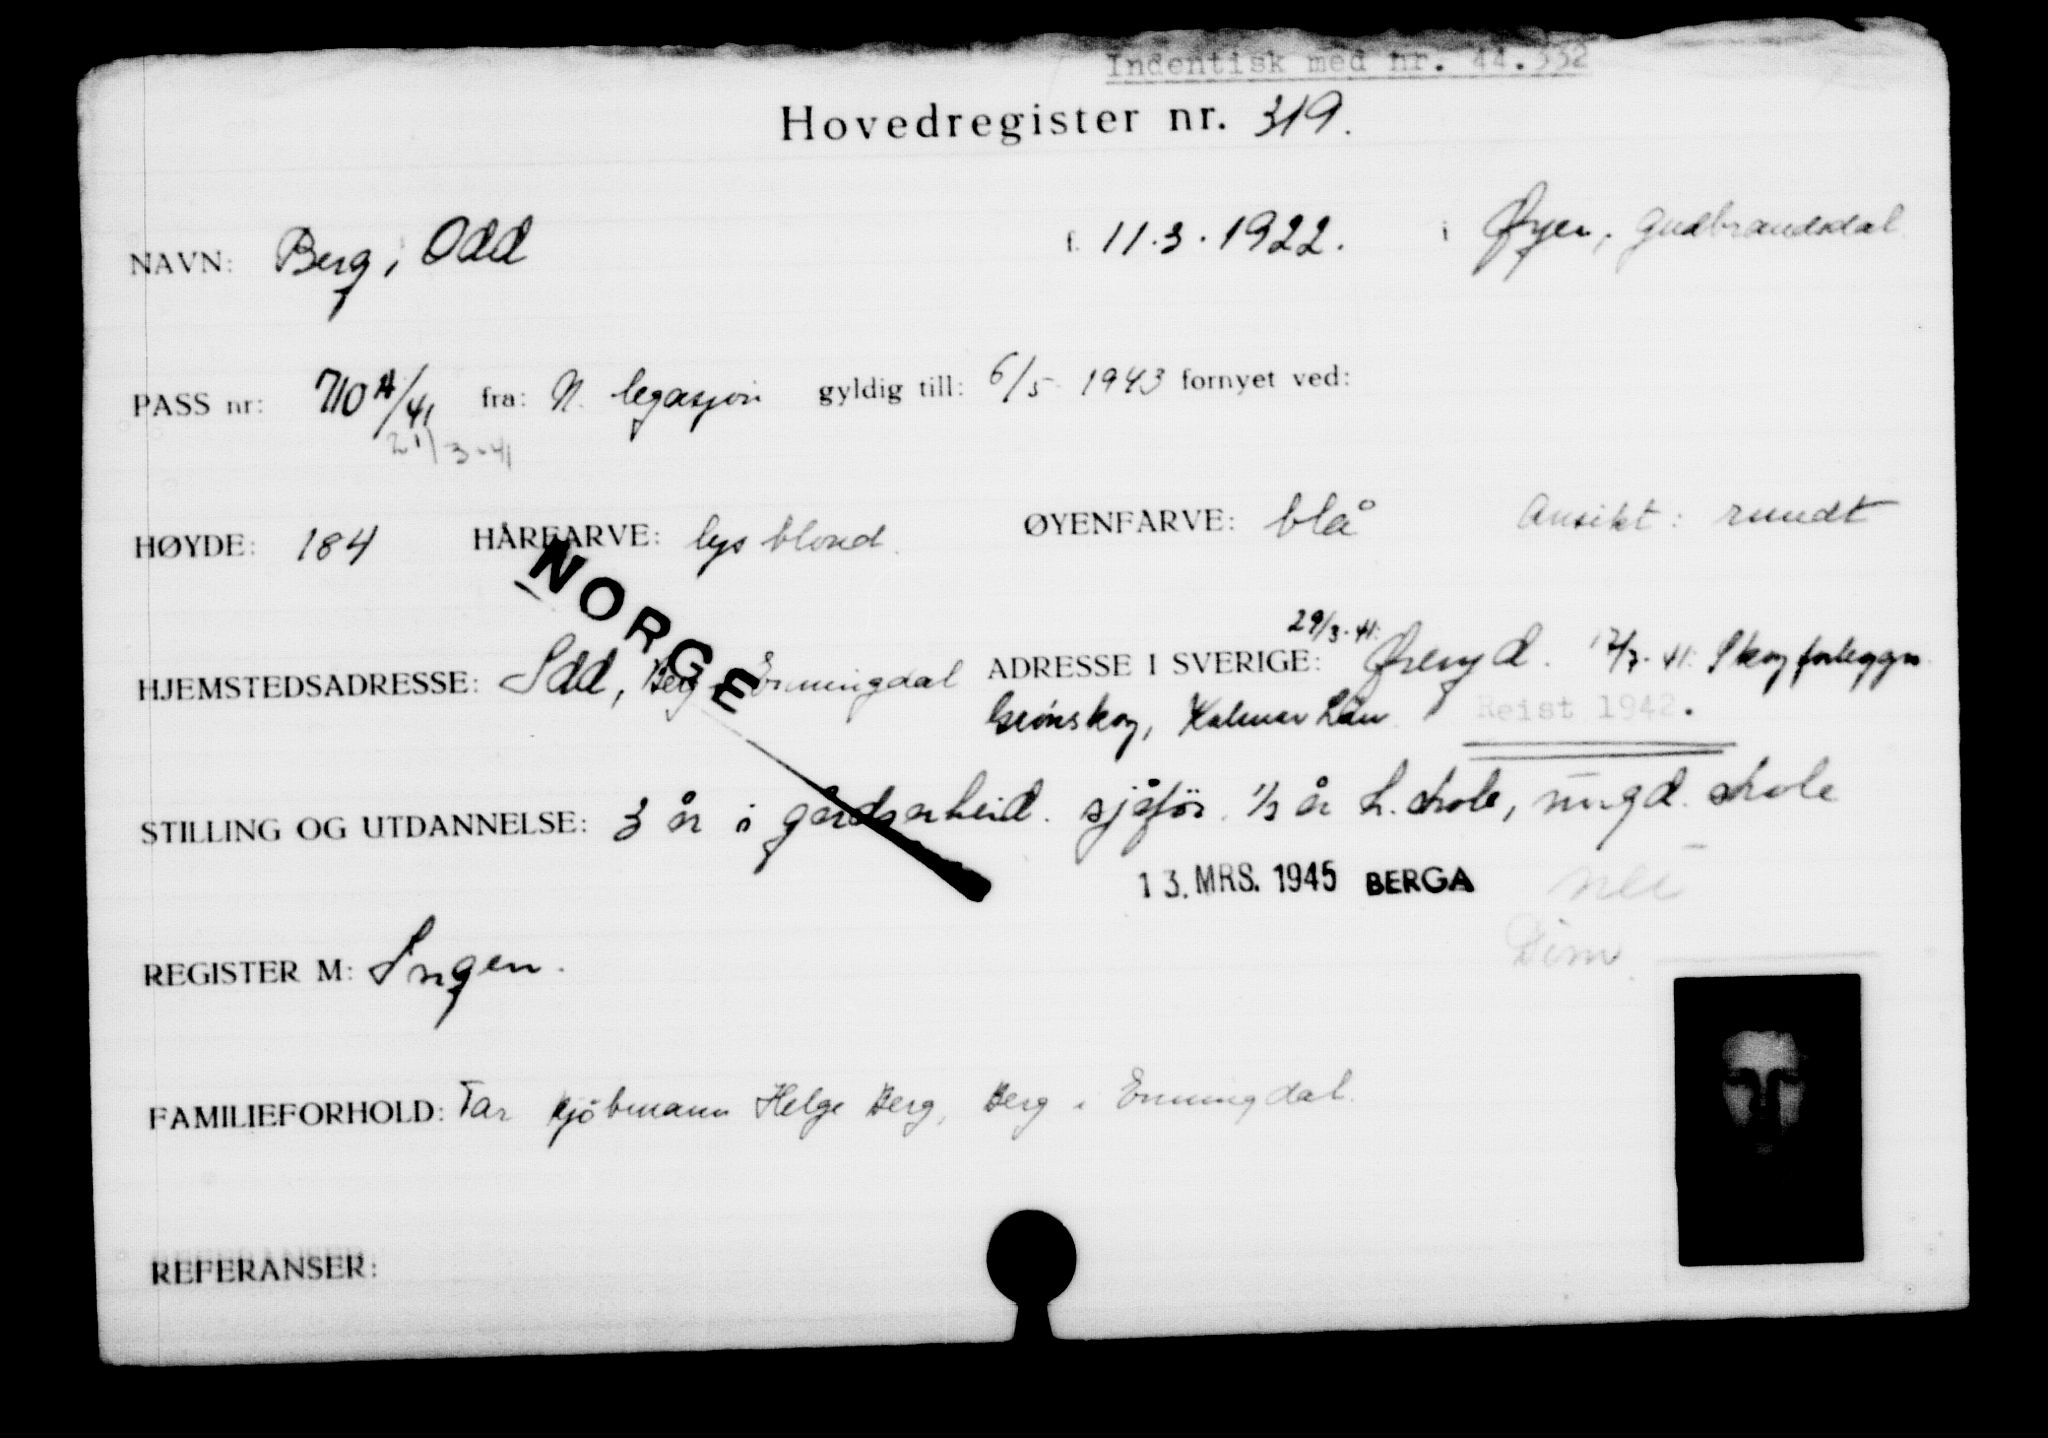 Indentisk med nr. 44.332
Hovedregister nr. 319.
NAVN: Berg, Odd f. 11.3.1922. i Øyer, Gudbrandsdal
PASS nr: 710 A/41 fra: N. legasjon gyldig till: 6/5 1943 fornyet ved:
21/3-41
HØYDE: 184 HÅRFARVE: lys blond. ØYENFARVE: blå Ansikt: rundt
NORGE
29/3-41:
HJEMSTEDSADRESSE: Idd, Berg i Enningdal ADRESSE I SVERIGE: Øreryd. 17/7-41: Skogforleggn.
Grönskog, Kalmar Län. Reist 1942.
STILLING OG UTDANNELSE: 3 år i gårdsarbeid. sjåför. 1/2 år L. skole, ungd. skole
13. MRS. 1945 BERGA nei
Dim.
REGISTER M: Ingen.
FAMILIEFORHOLD: Far kjöbmann Helge Berg, Berg i Enningdal.
REFERANSER: